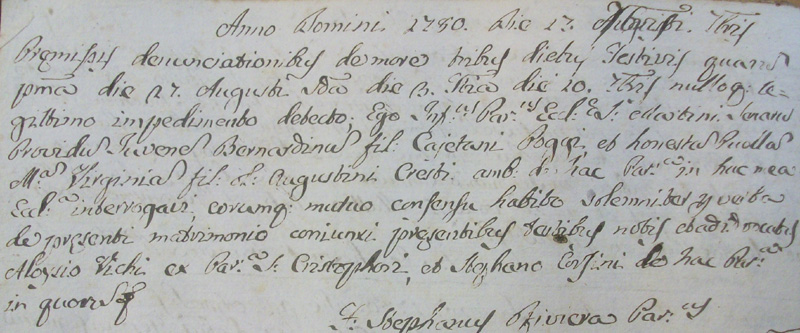 Anno Domini 1780. Die 17. 7bris
Premissis denunciationibus de more tribus diebus Festivis quarum
pma die 27. Augusti 2da die 3. 3tia die 10. 7bris nulloq: le=
gittimo impedimento detecto; Ego Inf.us Par.us Eccl.æ S. Martini
Providus Juvenes Bernardinus fil: Cajetani Poggi, et honestas Puellas
M.as Virginias fil: q. Augustini Cresti amb. de hac Par.a in hac mea
Eccl.a interrogavi, eorumq: mutuo consensu habito solemniter p verba
de presenti matrimonio coniunxi presentibus testibus notis et ad id vocatis
Aloysio Vichi ex Par.a S. Cristophori, et Stephano Corsini de hac Par.a
in quorum
F. Stephanus Riviera Par.us